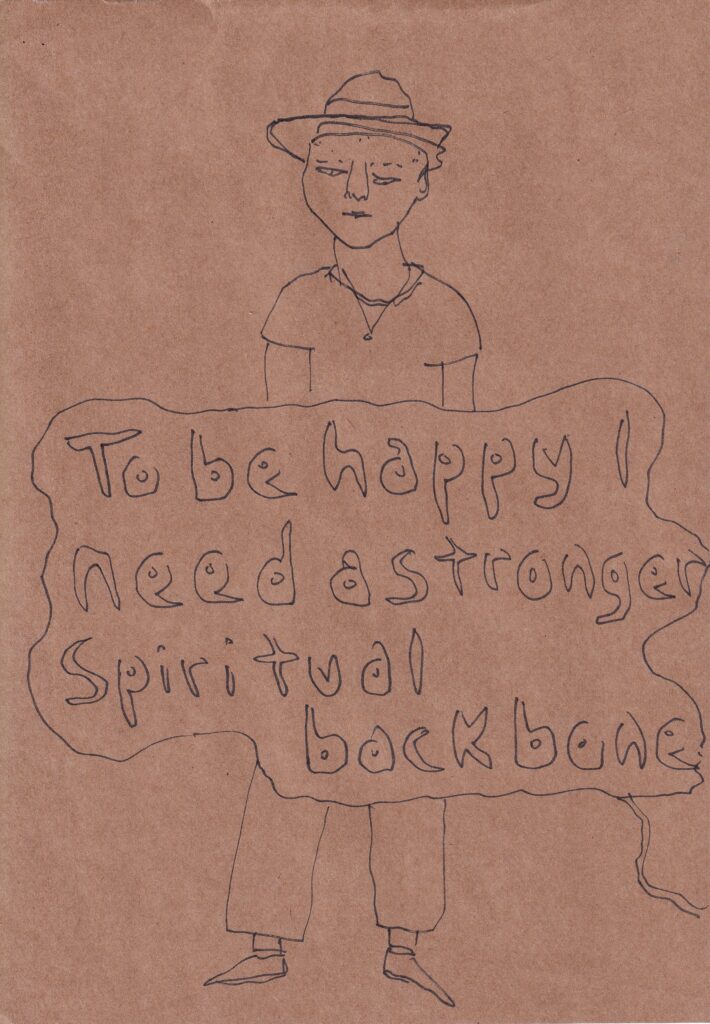 To be happy I
need a stronger
Spiritual
back bone